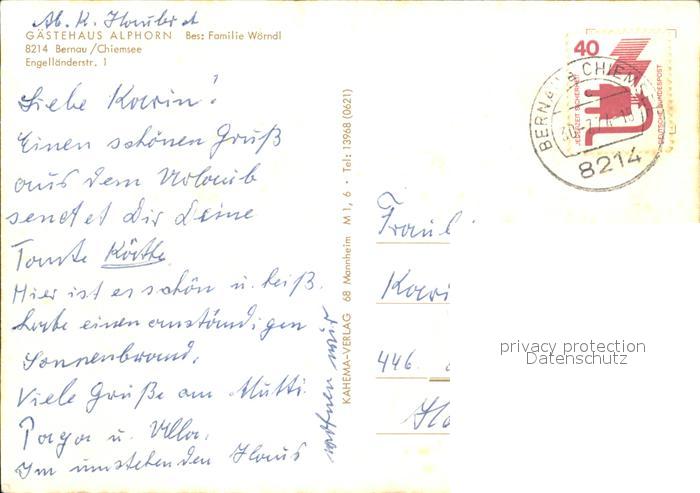 Ab. K. Haubr
GÄSTEHAUS ALPHORN Bes: Familie Wörndl
8214 Bernau/Chiemsee
Engelländerstr. 1
Liebe Karin!
Einen schönen Gruß
aus dem Urlaub
sendet Dir Deine
Tante Käthe
Hier ist es schön u. heiß.
habe einen anständigen
Sonnenbrand.
Viele Grüße an Mutti
Papa u. Ulla.
Im umstehenden Haus
wohnen wir
KAHEMA-VERLAG 68 Mannheim M 1, 6 · Tel: 13968 (0621)
40
JEDERZEIT SICHERHEIT
DEUTSCHE BUNDESPOST
BERNAU a CHIEM
8214
Fräul
Kari
446
privacy protection
Datenschutz